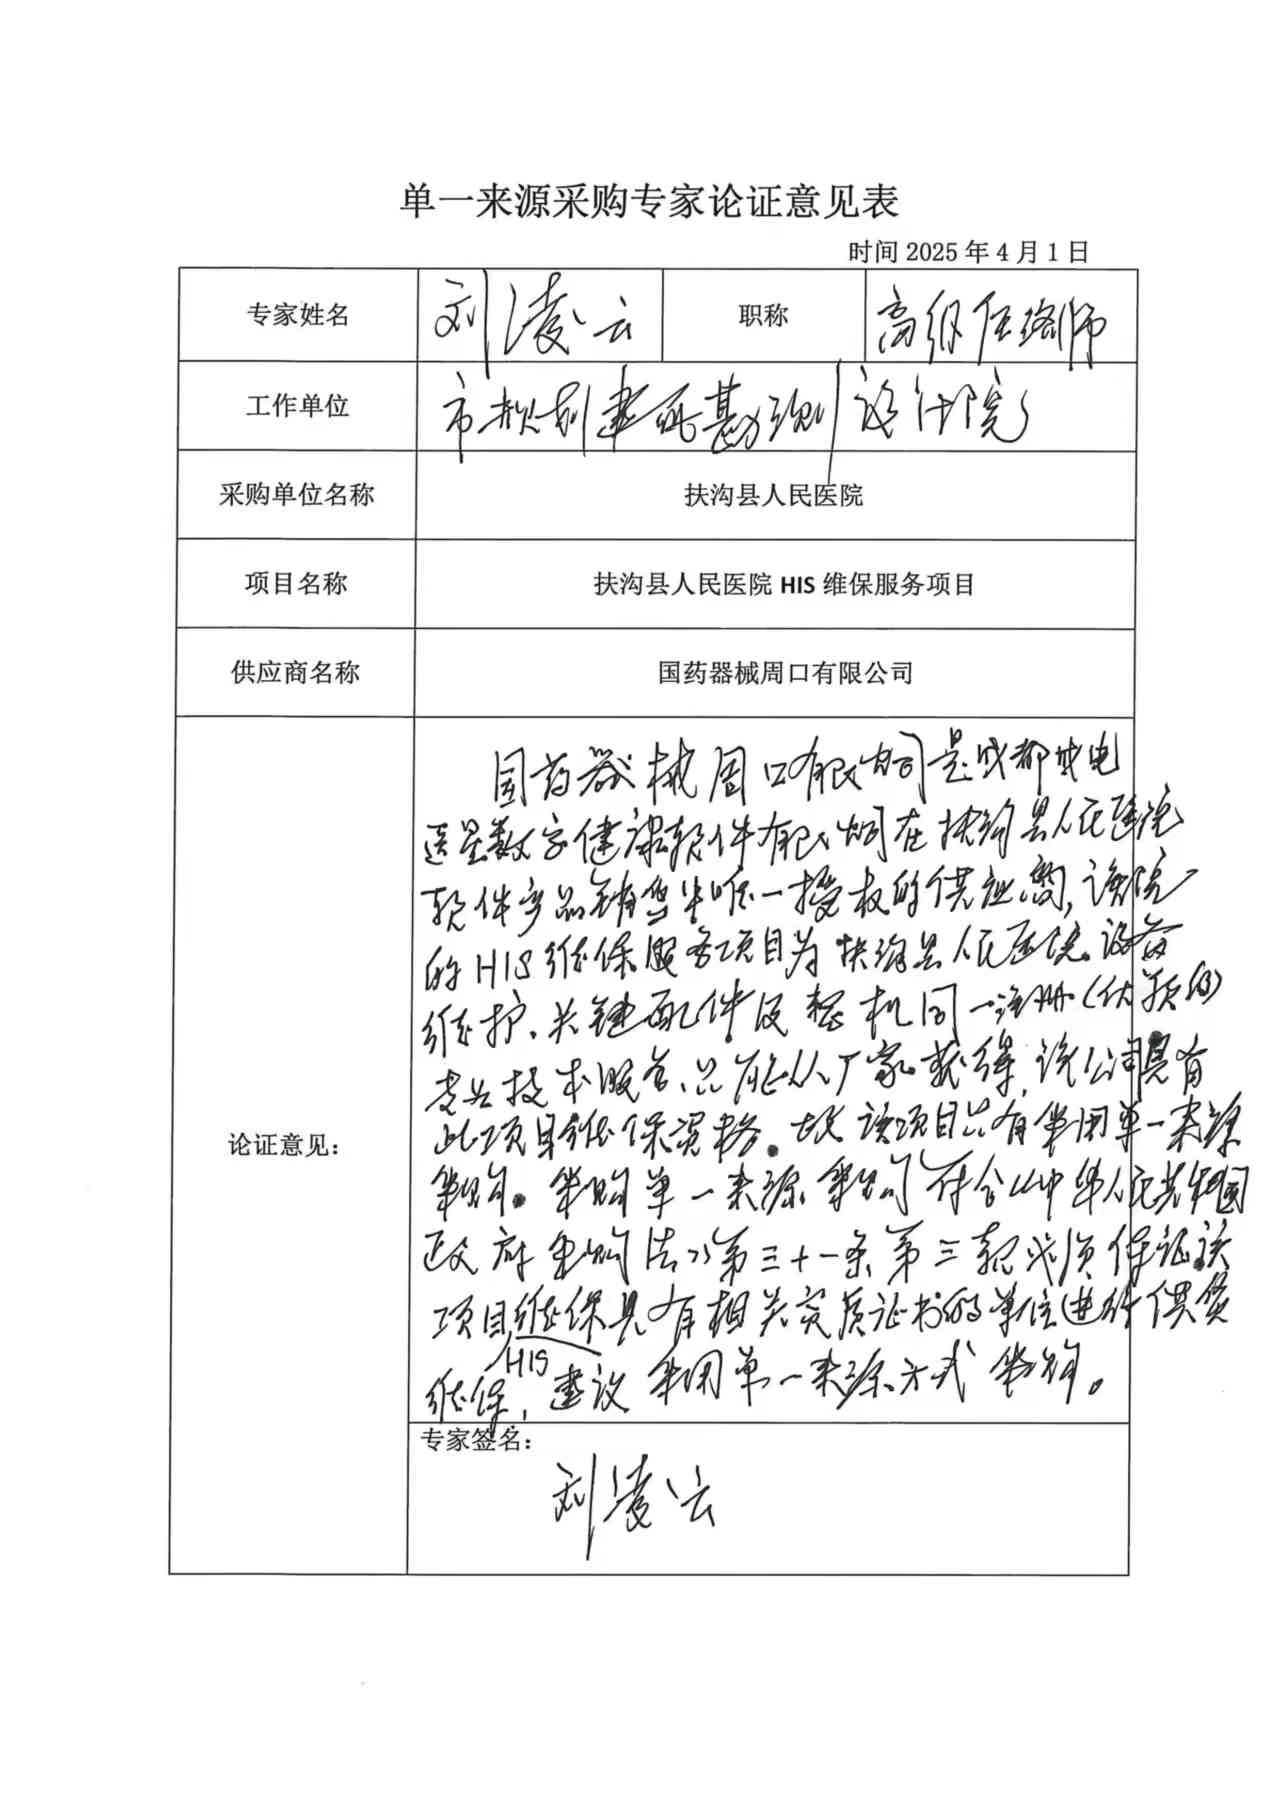 单一来源采购专家论证意见表
时间 2025 年 4 月 1 日
专家姓名 刘凌云 职称 高级工程师
工作单位 市规划建筑勘测设计院
采购单位名称 扶沟县人民医院
项目名称 扶沟县人民医院 HIS 维保服务项目
供应商名称 国药器械周口有限公司
论证意见:
国药器械周口有限公司是成都成电
医星数字健康软件有限公司在扶沟县人民医院
软件产品销售唯一授权的供应商,该院
的HIS维保服务项目为扶沟县人民医院设备
维护、关键配件及整机同一注册
技术服务、只能从厂家获得,该公司具有
此项目维保资格。故该项目只有采用单一来源
采购。采购单一来源采购符合《中华人民共和国
政府采购法》第三十一条第三款 保证该
项目维保具有相关资质证书的单位进行供货
HIS
维保,建议采用单一来源方式采购。
专家签名:
刘凌云